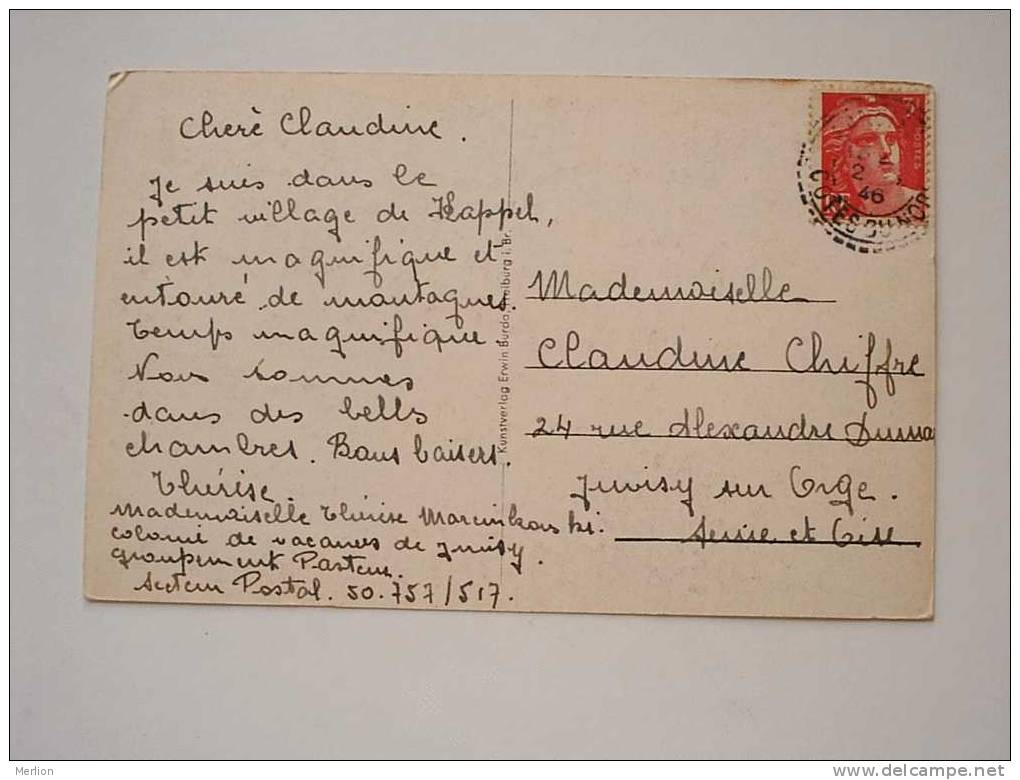 Cherè Claudine.
Je suis dans le
petit village de Kappel,
il est magnifique et
entouré de montagnes.
temps magnifique
Nous sommes
dans des bells
chambres. Bons baisers.
Thérèse.
Mademoiselle Thérèse Marcinkowski.
colonie de vacances de Juvisy.
groupement Pasteur.
Secteur Postal. 50.757/517.
Kunstverlag Erwin Burda, Freiburg i. Br.
POSTES
2
46
COTES DU NOR
Mademoiselle
Claudine Chiffre
24 rue Alexandre Dumas
Juvisy sur Orge.
Seine et Oise
Merlion
www.delcampe.net